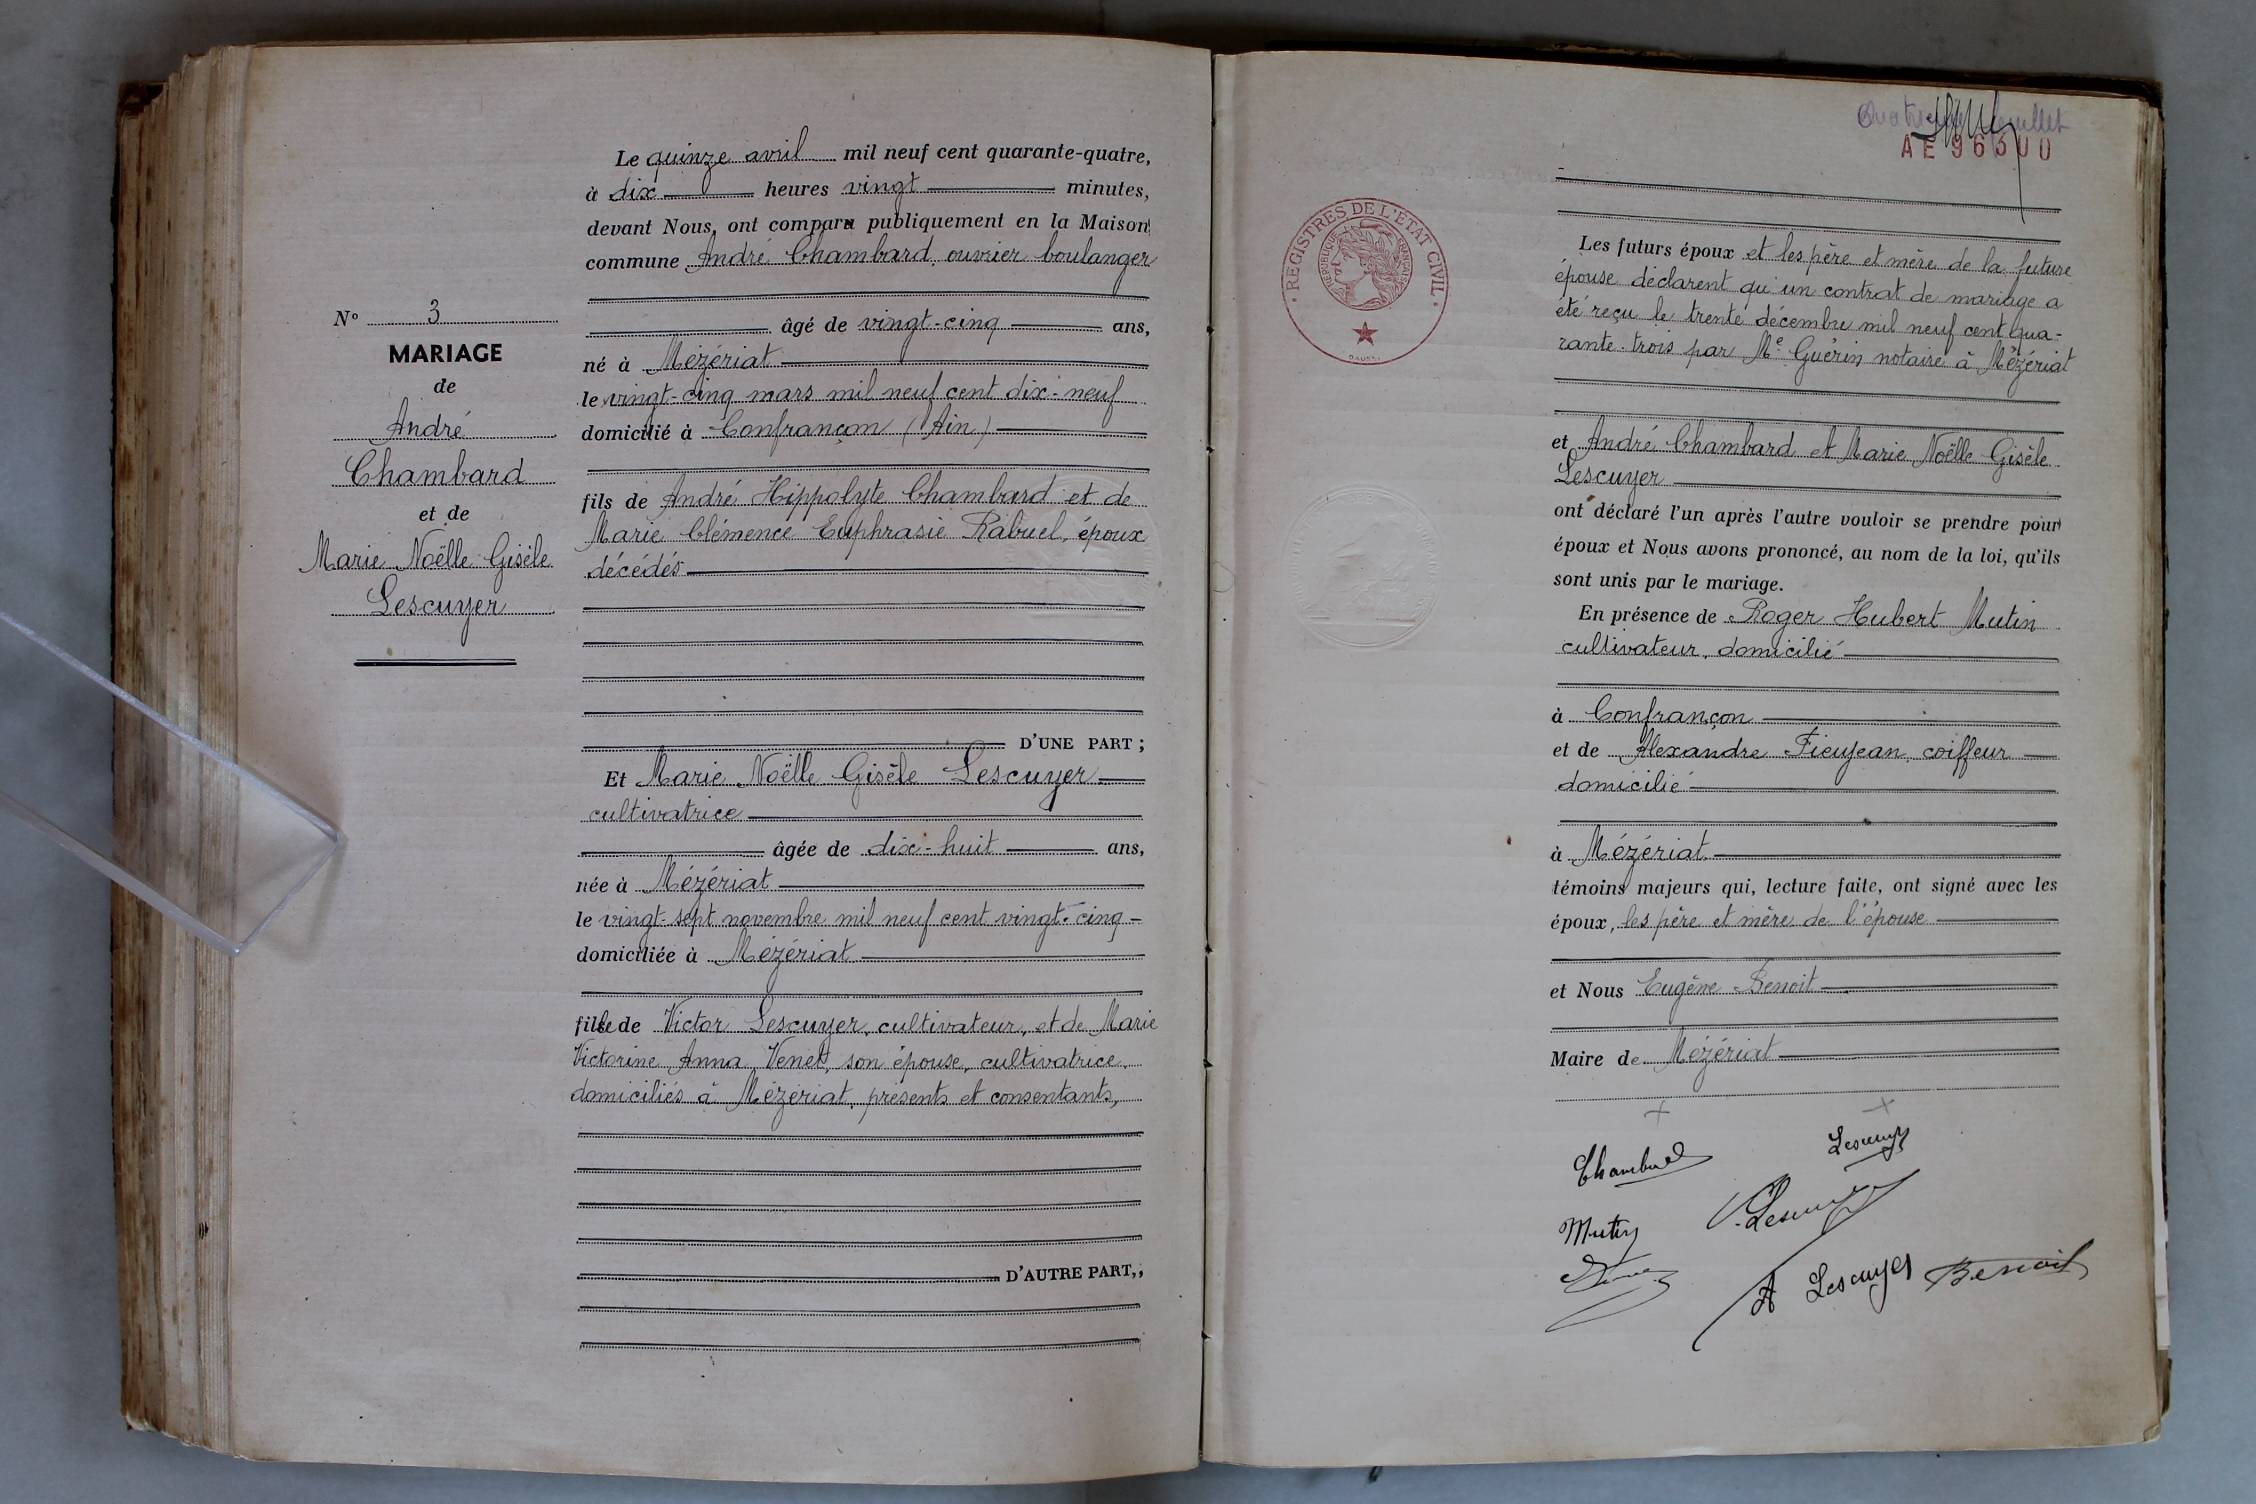 N° 3
MARIAGE
de
André
Chambard
et de
Marie Noëlle Gisèle
Lescuyer
Le quinze avril mil neuf cent quarante-quatre,
à dix heures vingt minutes,
devant Nous, ont comparu publiquement en la Maison
commune André Chambard, ouvrier boulanger
âgé de vingt-cinq ans,
né à Mézériat
le vingt-cinq mars mil neuf cent dix-neuf
domicilié à Confrançon (Ain)
fils de André Hippolyte Chambard et de
Marie Clémence Euphrasie Rabuel, époux
décédés
D'UNE PART ;
Et Marie Noëlle Gisèle Lescuyer
cultivatrice
âgée de dix-huit ans,
née à Mézériat
le vingt-sept novembre mil neuf cent vingt-cinq
domiciliée à Mézériat
fille de Victor Lescuyer, cultivateur, et de Marie
Victorine Anna Venet, son épouse, cultivatrice,
domiciliés à Mézériat, présents et consentants,
D'AUTRE PART,,
feuillet
AE 96300
REGISTRES DE L'ÉTAT CIVIL
RÉPUBLIQUE FRANÇAISE
Les futurs époux et les père et mère de la future
épouse déclarent qu'un contrat de mariage a
été reçu le trente décembre mil neuf cent qua-
rante-trois par Me Guérin notaire à Mézériat
et André Chambard et Marie Noëlle Gisèle
Lescuyer
ont déclaré l'un après l'autre vouloir se prendre pour
époux et Nous avons prononcé, au nom de la loi, qu'ils
sont unis par le mariage.
En présence de Roger Hubert Mutin
cultivateur, domicilié
à Confrançon
et de Alexandre Fieujean, coiffeur
domicilié
à Mézériat
témoins majeurs qui, lecture faite, ont signé avec les
époux, les père et mère de l'épouse
et Nous Eugène Benoit
Maire de Mézériat
Chambard
Lescuyer
Mutin
V. Lescuyer
A Lescuyer
Benoit